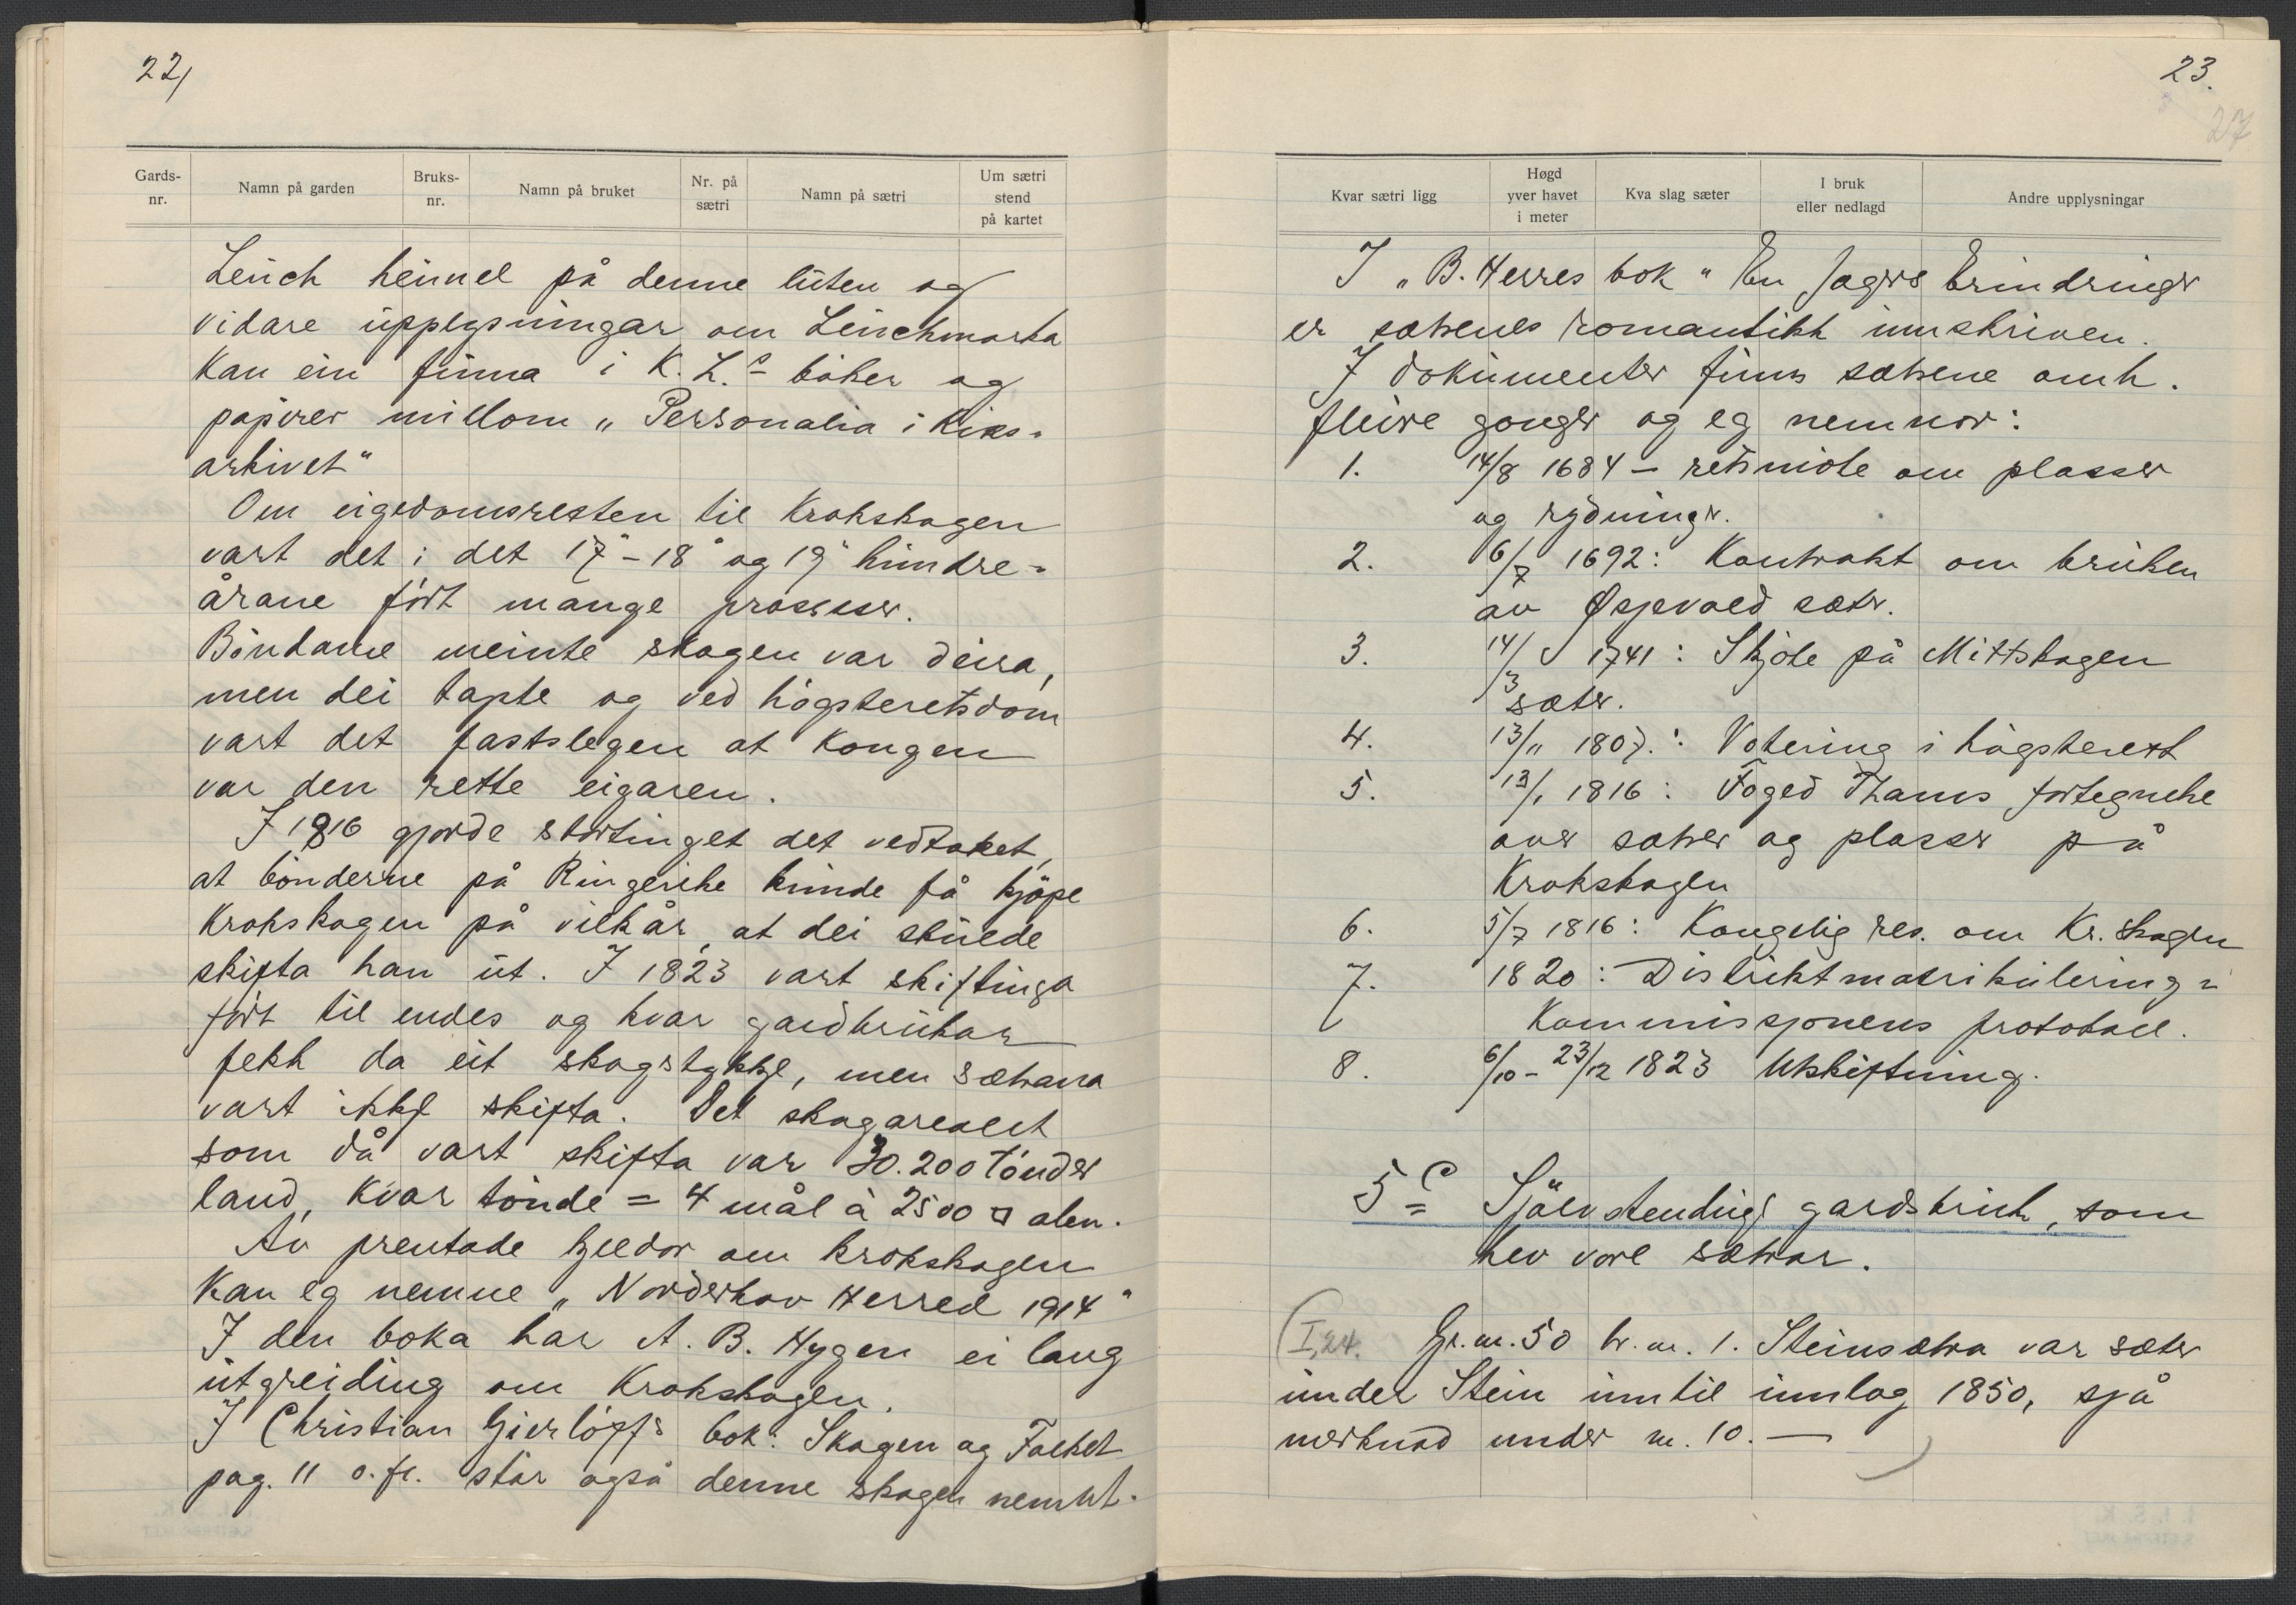 22/
Gards-
nr.
Namn på garden
Bruks-
nr.
Namn på bruket
Nr. på
sætri
Namn på sætri
Um sætri
stend
på kartet
Leuch heimel på denne luten og
vidare upplysningar om Leuchmarka
kan ein finna i K. L.s bøker og
papirer millom „Personalia i Riks-
arkivet"
Om eigedomsretten til Krokskogen
vart det i det 17" - 18" og 19" hundre-
årane ført mange prosesser.
Bøndane meinte skogen var deira,
men dei tapte og ved høgsteretsdom
vart det fastslegen at Kongen
var den rette eigaren.
I 1816 gjorde stortinget det vedtaket,
at bønderne på Ringerike kunde få kjøpe
Krokskogen på vilkår, at dei skulde
skifta han ut. I 1823 vart skiftinga
ført til endes og kvar gardbrukar
fekk da eit skogstykkje, men sætrana
vart ikkje skifta. Det skogarealet
som då vart skifta var 30.200 tønder
land, kvar tønde = 4 mål à 2500 □ alen.
Av prentade kjeldor om krokskogen
kan eg nemne „Norderhov Herred 1914"
I den boka har A. B. Hygen ei lang
utgreiding om Krokskogen.
I Christian Gierløffs bok: Skogen og Folket
pag. 11 o. fl. står også denne skogen nemnt.
23.
27
Kvar sætri ligg
Høgd
yver havet
i meter
Kva slag sæter
I bruk
eller nedlagd
Andre upplysningar
I „B. Herres bok" En Jægers Erindringer
er sætrenes romantikk innskriven.
I dokumenter finns sætrene omh.
fleire gonger og eg nemner:
1. 14/8 1684 - retsmøte om plasser
og rydninger.
2. 6/7 1692: Kontrakt om bruken
av Øspevold sæter.
3. 14/3 1741: Skjøte på Mittskogen
sæter.
4. 13/11 1807.: Votering i høgsterett
5. 13/1 1816: Foged Thams fortegnelse
over sætrer og plasser på
Krokskogen
6. 5/7 1816: Kongelig res. om Kr. skogen
7. 1820: Distriktmatrikulering=
Kommissjonens protokoll.
8. 6/10 - 23/12 1823 Utskiftning.
5 c Sjølvstendige gardsbruk, som
hev vore sætrar.
(I,24. Gr. nr. 50 br. nr. 1. Steinsætra var sæter
under Stein inntil innlog 1850, sjå
merknad under nr. 10. — )